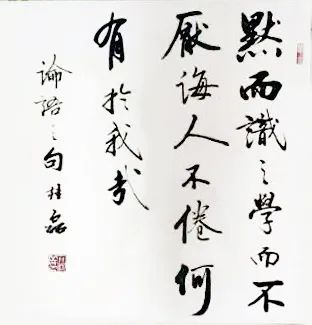 默而識之學而不
厭誨人不倦何
有於我哉
論語之句 桂磊